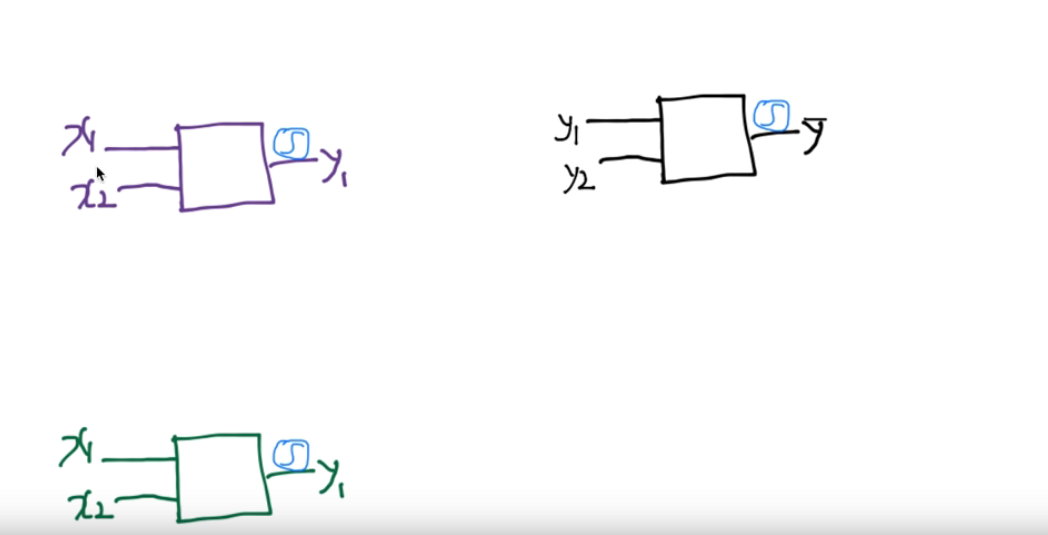 x₁
x₂
S
y₁
y₁
y₂
S
ȳ
x₁
x₂
S
y₁